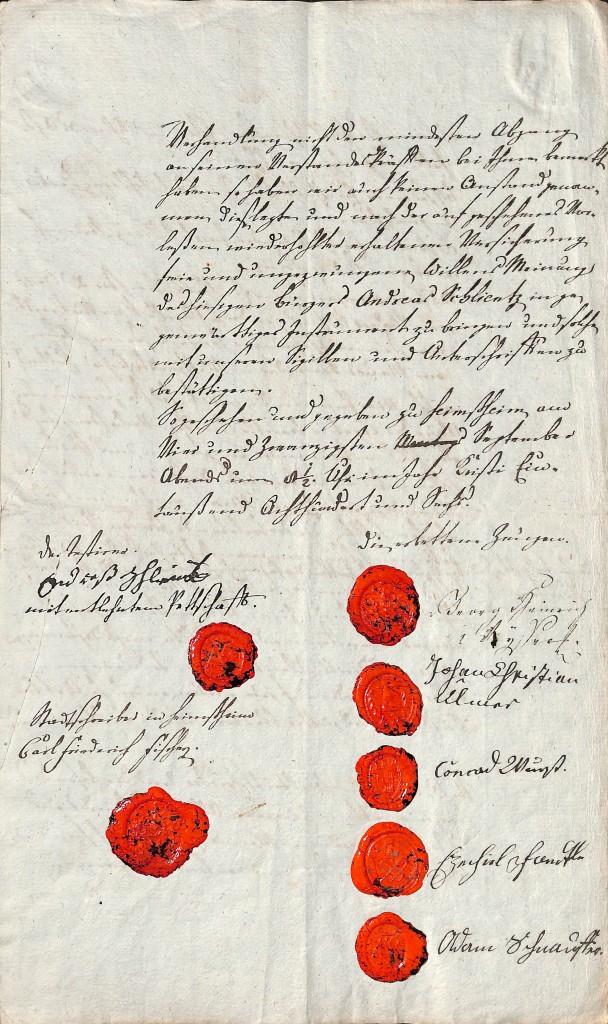 Verhandlung nicht den mindesten Abgang
an seinen Verstandes Kräften bei Ihme bemerkt
haben, so haben wir auch keinen Anstand genom¬
men, diese letzte und nach der auf geschehenes Vor¬
leßen wiederhohlter erhaltenen Versicherung
freie und ungezwungene Willens Meinung
des hiesigen Burgers Andreas Schlientz in ge¬
genwärttiges Instrument zu bringen und solches
mit unseren Sigillen und Unterschrifften zu
bestättigen.
So geschehen und gegeben zu Heimsheim am
Vier und Zwanzigsten September
Abends um 8 1/2. Uhr im Jahr Kristi Ein¬
tausend Achthundert und Sechs.
Der Testirer.
Schlientz
mit entlehntem Pettschafft.
Stadtschreiber in Heimsheim
Carl Friderich Fischer.
Die erbettene Zeugen.
Georg Heinrich
Johan Christian
Ulmer
Conrad Wurst.
Ezechiel
Adam Schnauffer.